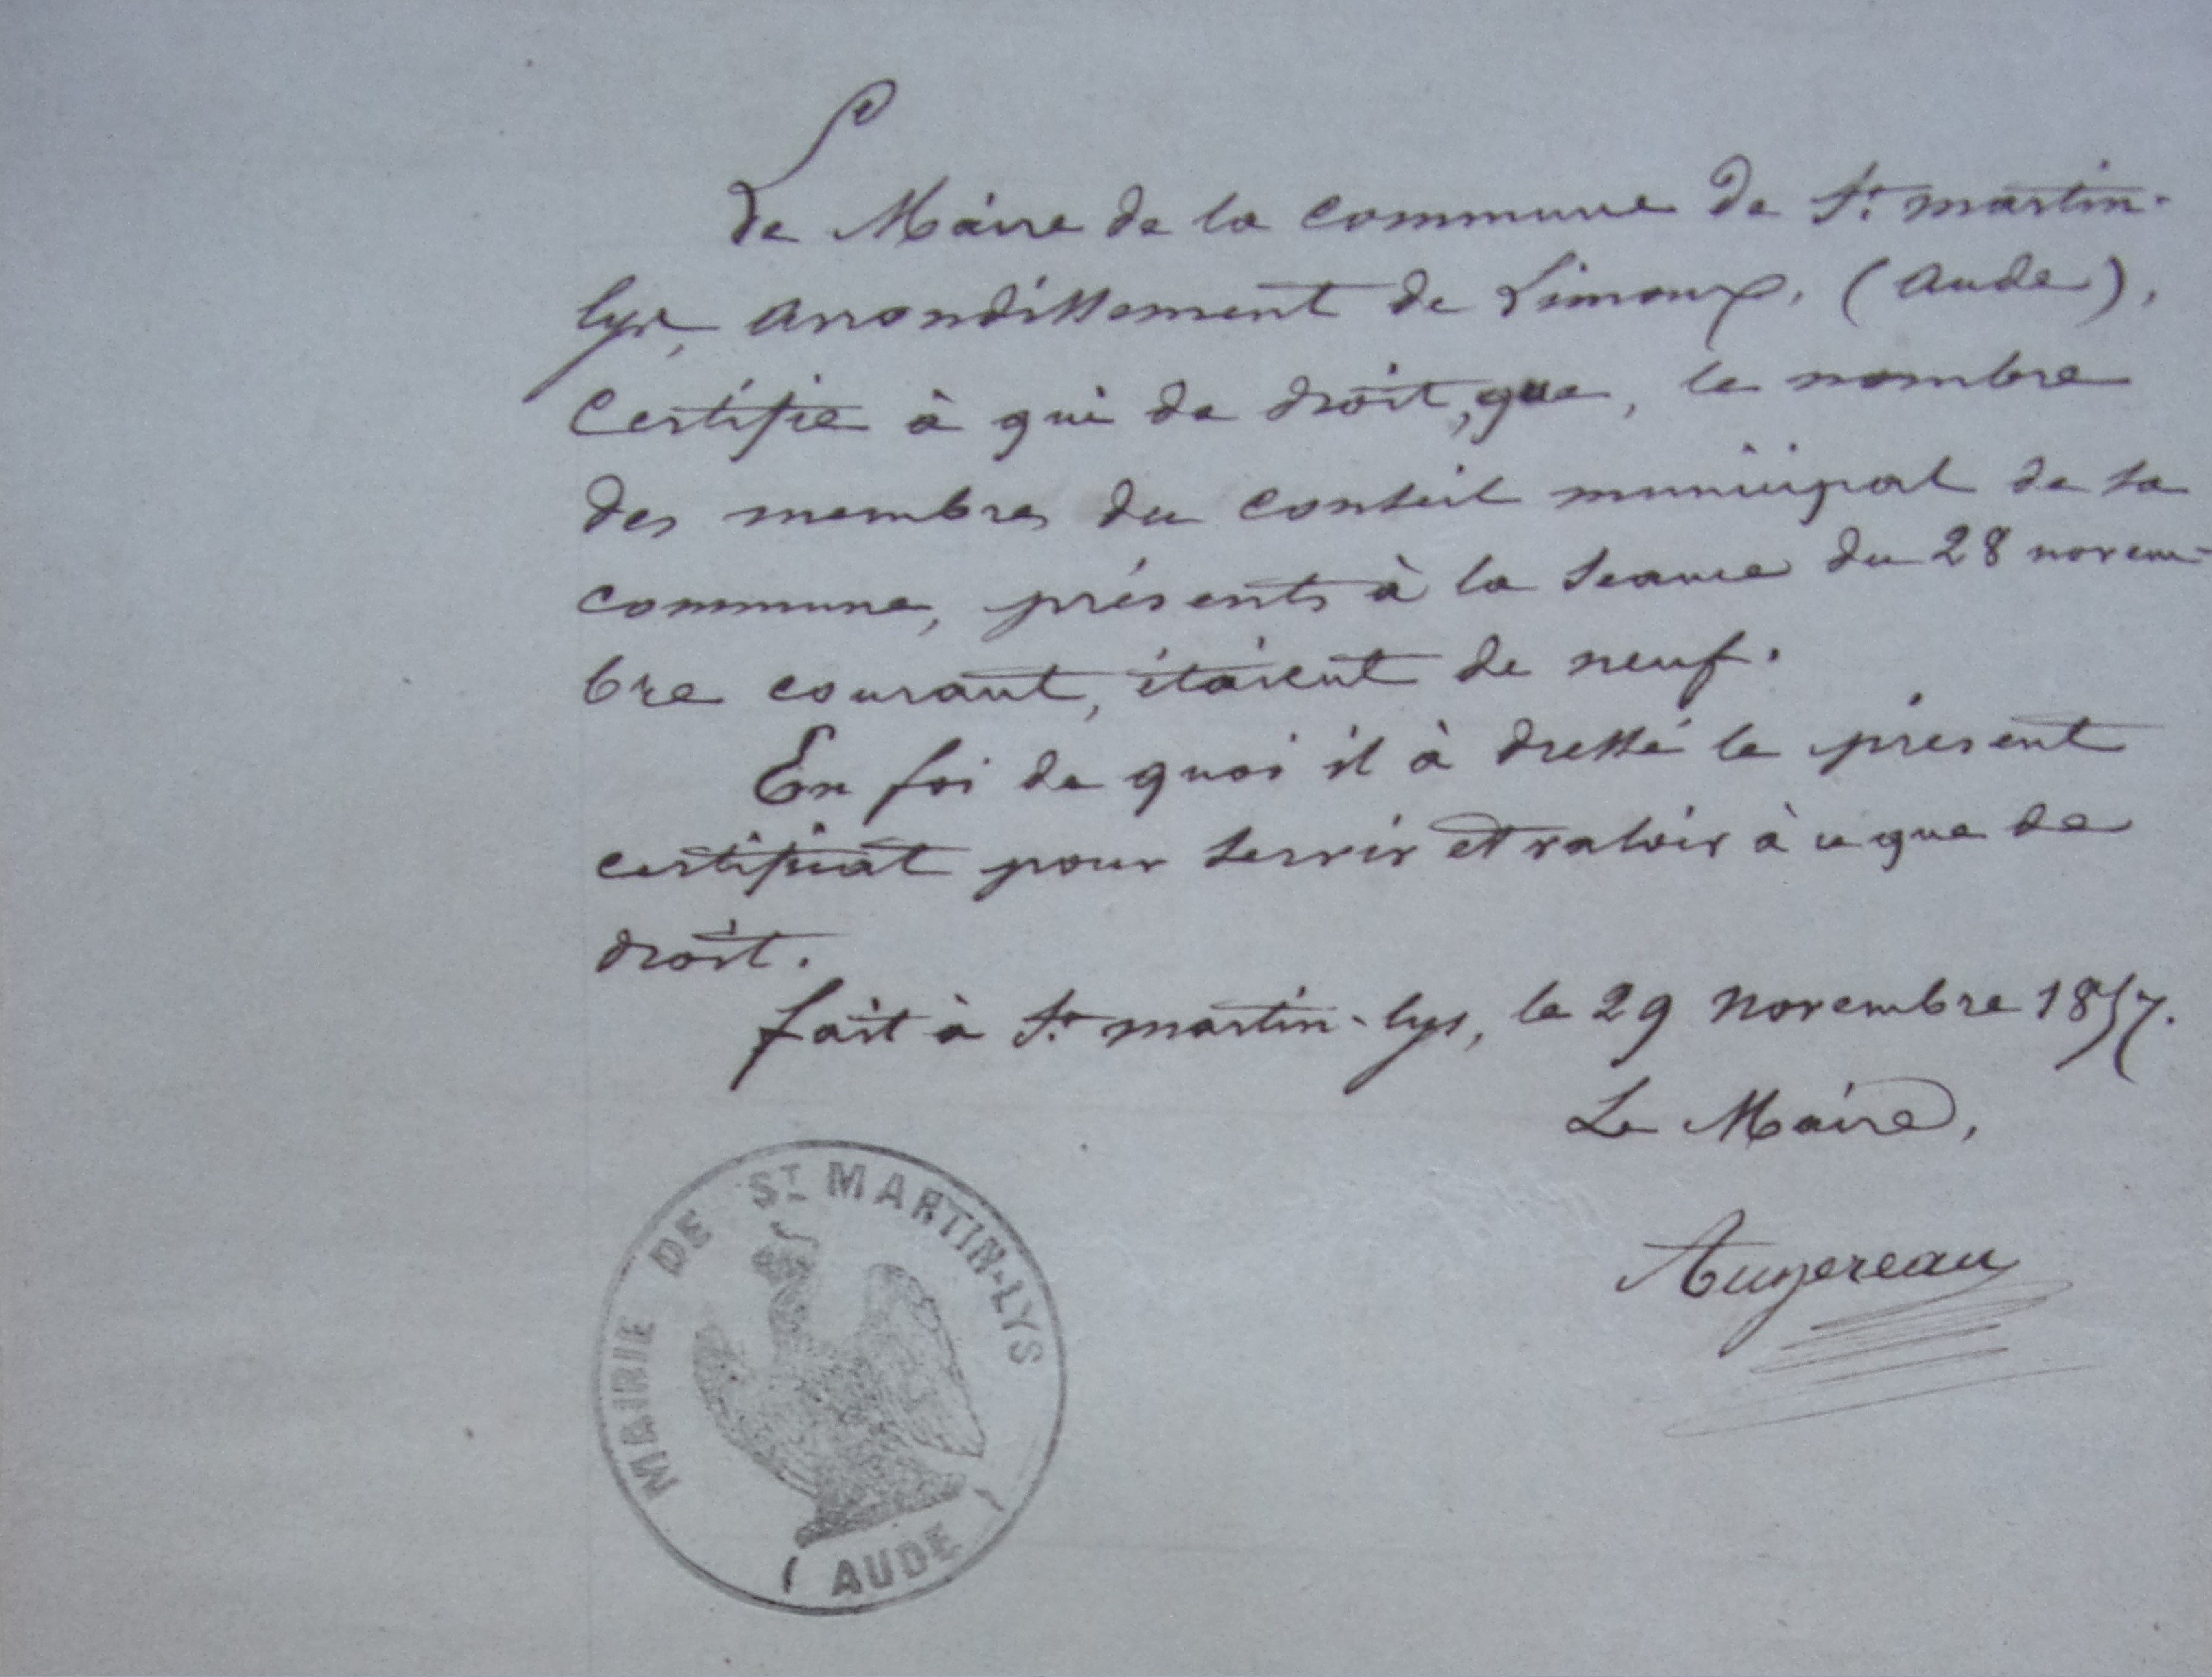 Le Maire de la commune de St. martin-
lys, arrondissement de Limoux, (Aude),
Certifie à qui de droit, que, le nombre
des membres du conseil municipal de sa
commune, présents à la seance du 28 novem-
bre courant, étaient de neuf.
En foi de quoi il à dressé le présent
certificat pour servir et valoir à ce que de
droit.
fait à St. martin-lys, le 29 Novembre 1857.
Le Maire,
Augereau
MAIRIE DE ST MARTIN-LYS
(AUDE)